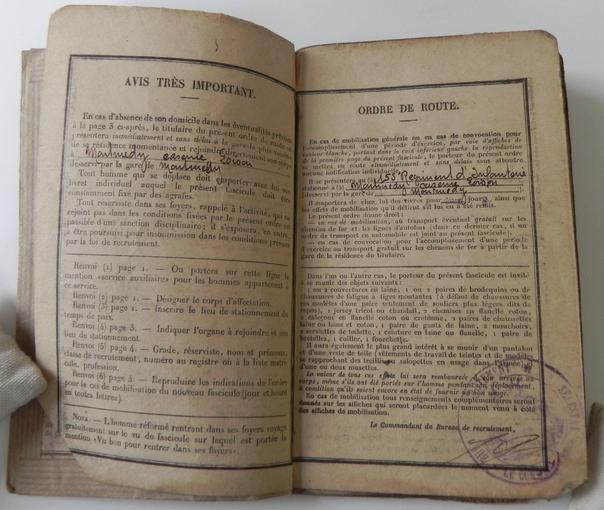 AVIS TRÈS IMPORTANT.
En cas d'absence de son domicile dans les éventualités prévues
à la page 3 ci-après, le titulaire du présent ordre de route se
présentera immédiatement et sans délai à la gare la plus voisine
de sa résidence momentanée et rejoindra directement son corps
à Montmédy caserne Loison
desservi par la gare de Montmédy
Tout homme qui se déplace doit emporter avec lui son
livret individuel auquel le présent fascicule doit être
constamment fixé par des agrafes.
Tout réserviste dans ses foyers, rappelé à l'activité, qui ne
rejoint pas dans les conditions fixées par le présent ordre est
passible d'une sanction disciplinaire; il s'expose, en outre,
à être poursuivi pour insoumission dans les conditions prévues
par la loi de recrutement.
Renvoi (1) page 1. — On portera sur cette ligne la
mention «service auxiliaire» pour les hommes appartenant à
ce service.
Renvoi (2) page 1. — Désigner le corps d'affectation.
Renvoi (3) page 1. — Inscrire le lieu de stationnement du
temps de paix.
Renvoi (4) page 3. — Indiquer l'organe à rejoindre et son
lieu de stationnement.
Renvoi (5) page 4. — Grade, réserviste, nom et prénoms,
classe de recrutement, numéro au registre où à la liste matri-
cule, profession.
Renvoi (6) page 3. — Reproduire les indications de l'ordre
pour le cas de mobilisation du nouveau fascicule (jour et heure
en toutes lettres).
NOTA. — L'homme réformé rentrant dans ses foyers voyage
gratuitement sur le vu du fascicule sur lequel est portée la
mention «Vu bon pour rentrer dans ses foyers».
ORDRE DE ROUTE.
En cas de mobilisation générale ou en cas de convocation pour
l'accomplissement d'une période d'exercice, par voie d'affiches de
couleur blanche, portant dans le coin inférieur gauche la reproduction
de la première page du présent fascicule, le porteur du présent ordre
se mettra en route immédiatement et sans délais sans attendre
aucune notification individuelle.
Il se présentera au 155 Régiment d'Infanterie
stationné à Montmédy caserne Loison
desservi par la gare de Montmédy
Il emportera de chez lui des vivres pour jours, ainsi que
les effets de mobilisation qu'il détient s'il lui en a été remis.
Le présent ordre donne droit :
— en cas de mobilisation, au transport éventuel gratuit sur les
chemins de fer et les lignes d'autobus (dans ce dernier cas, si un
ordre de transport en automobile est joint au présent fascicule).
— en cas de convocation pour l'accomplissement d'une période
d'exercice au transport gratuit sur les chemins de fer à partir de la
gare de la résidence du titulaire.
Dans l'un ou l'autre cas, le porteur du présent fascicule est invité
à se munir des objets suivants :
1 ou 2 couvertures en laine, 1 ou 2 paires de brodequins ou de
chaussures de fatigue à tiges montantes (à défaut de chaussures de
ces modèles d'une paire seulement de souliers plus légers dits de
repos), 1 jersey tricot ou chandail, 2 chemises en flanelle coton,
2 caleçons en flanelle coton ou cretonne, 2 paires de chaussettes
laine ou laine et coton, 1 paire de gants de laine, 2 mouchoirs,
2 serviettes de toilette, 1 ceinture en laine ou flanelle, 1 paire de
bretelles, 1 cuiller, 1 fourchette.
Il aura également le plus grand intérêt à se munir d'un pantalon
et d'une veste de toile (vêtements de travail de teintes et de modèles
se rapprochant des treillis et salopettes en usage dans l'armée) et
d'une ou deux musettes.
La valeur de tous ces effets lui sera remboursée à son arrivée au
corps, même s'ils ont été portés sur l'homme pendant son déplacement,
à condition qu'ils soient encore en état de fournir un bon usage.
En cas de mobilisation tous renseignements complémentaires seront
donnés sur les affiches qui seront placardées le moment venu à côté
des affiches de mobilisation.
Le Commandant du Bureau de recrutement,